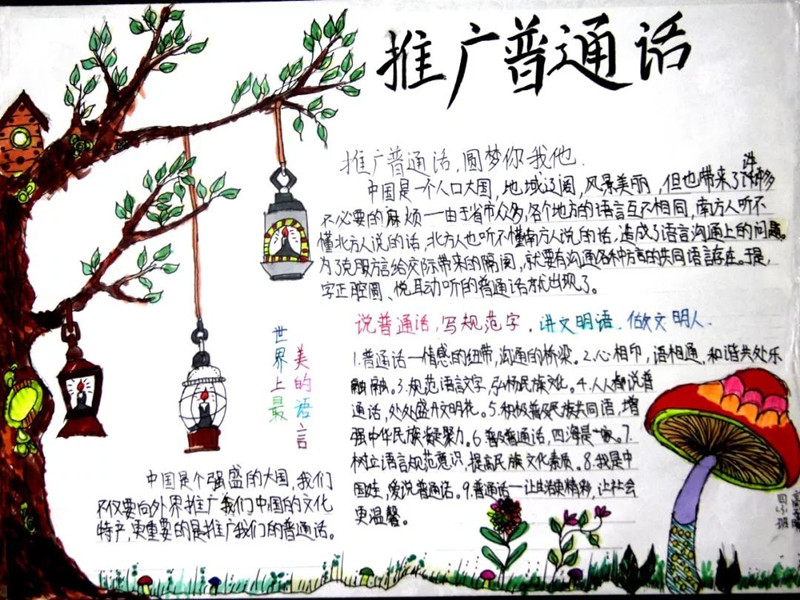 推广普通话
推广普通话,圆梦你我他.
中国是一个人口大国,地域辽阔,风景美丽,但也带来了许多
不必要的麻烦——由于省市众多,各个地方的语言互不相同,南方人听不
懂北方人说的话,北方人也听不懂南方人说的话,造成了语言沟通上的问题。
为了克服方言给交际带来的隔阂,就要有沟通各种方言的共同语言存在。于是,
字正腔圆、悦耳动听的普通话就出现了。
说普通话,写规范字,讲文明语,做文明人.
1.普通话—情感的纽带,沟通的桥梁。2.心相印,语相通,和谐共处乐
融融。3.规范语言文字,弘扬民族文化。4.人人都说普
通话,处处盛开文明花。5.积极普及民族共同语,增
强中华民族凝聚力。6.普及普通话,四海是一家。7.
树立语言规范意识,提高民族文化素质。8.我是中
国娃,爱说普通话。9.普通话—让生活更精彩,让社会
更温馨。
世界上最
美的语言
中国是个强盛的大国,我们
不仅要向外界推广我们中国的文化
特产,更重要的是推广我们的普通话。